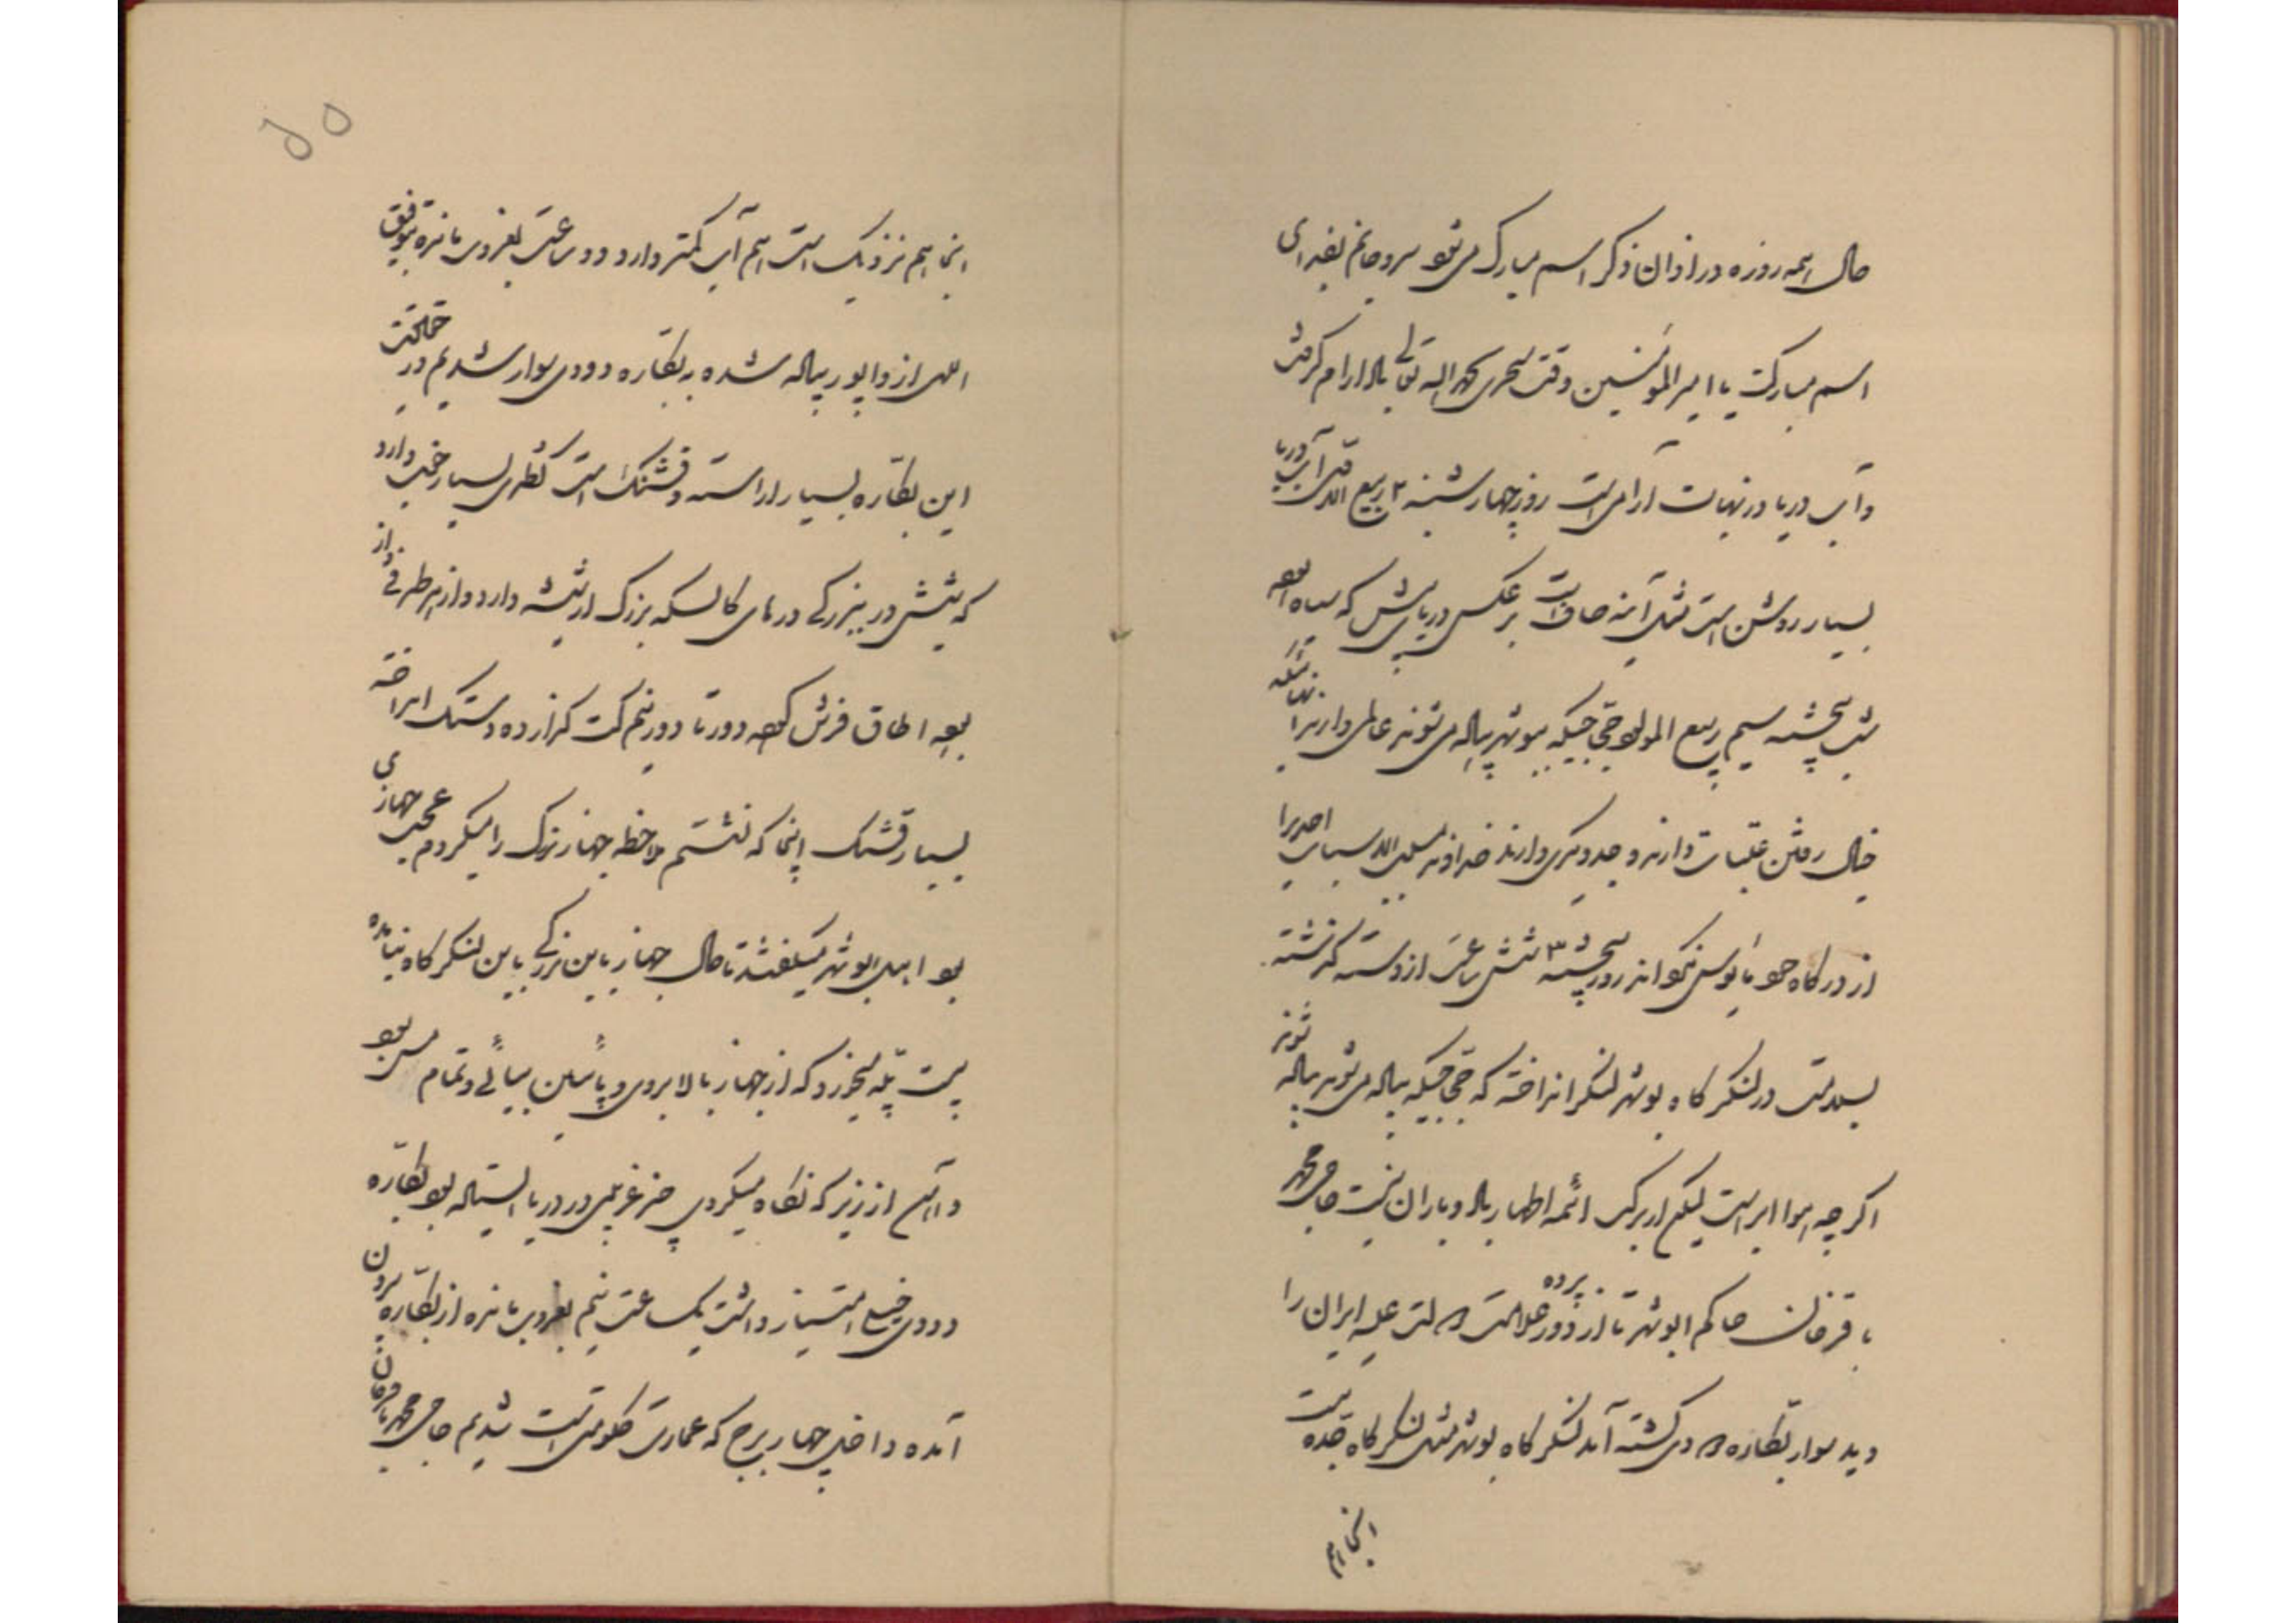 حال همه روزه در اذان ذکر اسم مبارک می شود سر و جانم بفدای
اسم مبارکت یا امیرالمؤمنین وقت سحری بحمدالله تعالی باد آرام گرفت
و آب دریا در نهایت آرامی است روز چهارشنبه ۲ ربیع الاول آب دریا
بسیار روشن است مثل آینه صاف است بر عکس دریای پیش که سیاه بود
شب پنجشنبه سیم ربیع المولود حجی جیکه بوشهر پیاده می شوند عالمی دارند آنها که
خیال رفتن عتبات دارند وجد دیگری دارند خداوند مسبب الاسباب احدی را
از درگاه خود مأیوس نکند روز پنجشنبه ۳ شش ساعت از دسته گذشته
بسلامت در لنگرگاه بوشهر لنگر انداخته که حجی جیکه پیاده می شوند پیاده شوند
اگرچه هوا ابر است لیکن از برکت ائمه اطهار باد و باران نیست حاجی محمد
باقرخان حاکم ابوشهر تا از دور علامت پرده دولت علیه ایران را
دید سوار بطاره دودی گشته آمد لنگرگاه بوشهر مثل لنگرگاه جده نیست
اینجا هم
اینجا هم نزدیک است هم آب کمتر دارد دو ساعت بغروب مانده بتوفیق
الهی از واپور پیاده شده به بطاره دودی سوار شدیم در حقیقت
این بطاره بسیار آراسته و قشنگ است نظری بسیار خوب دارد
که پیشش در بزرگی درهای کالسکه بزرگ از شیشه دارد و از هر طرفی و از
بود اطاق فرش کرده دور تا دور نیم کت گذارده دستک انداخته
بسیار قشنگ اینجا که نشستم ملاحظه جهاز بزرگ را میکردم عجب جهازی
بود اهل ابوشهر میگفتند تا حال جهاز باین بزرگی باین لنگرگاه نیامده
بیست پله میخورد که از جهاز بالا بروی و پائین بیائی و تمام مس بود
و آهن از زیر که نگاه میکردی چیز غریبی در دریا ایستاده بود بطاره
دودی خیلی امتیاز داشت یک ساعت نیم بغروب مانده از بطاره بیرون
آمده داخل چهار برج که عمارت حکومتی است شدیم حاجی محمد باقرخان